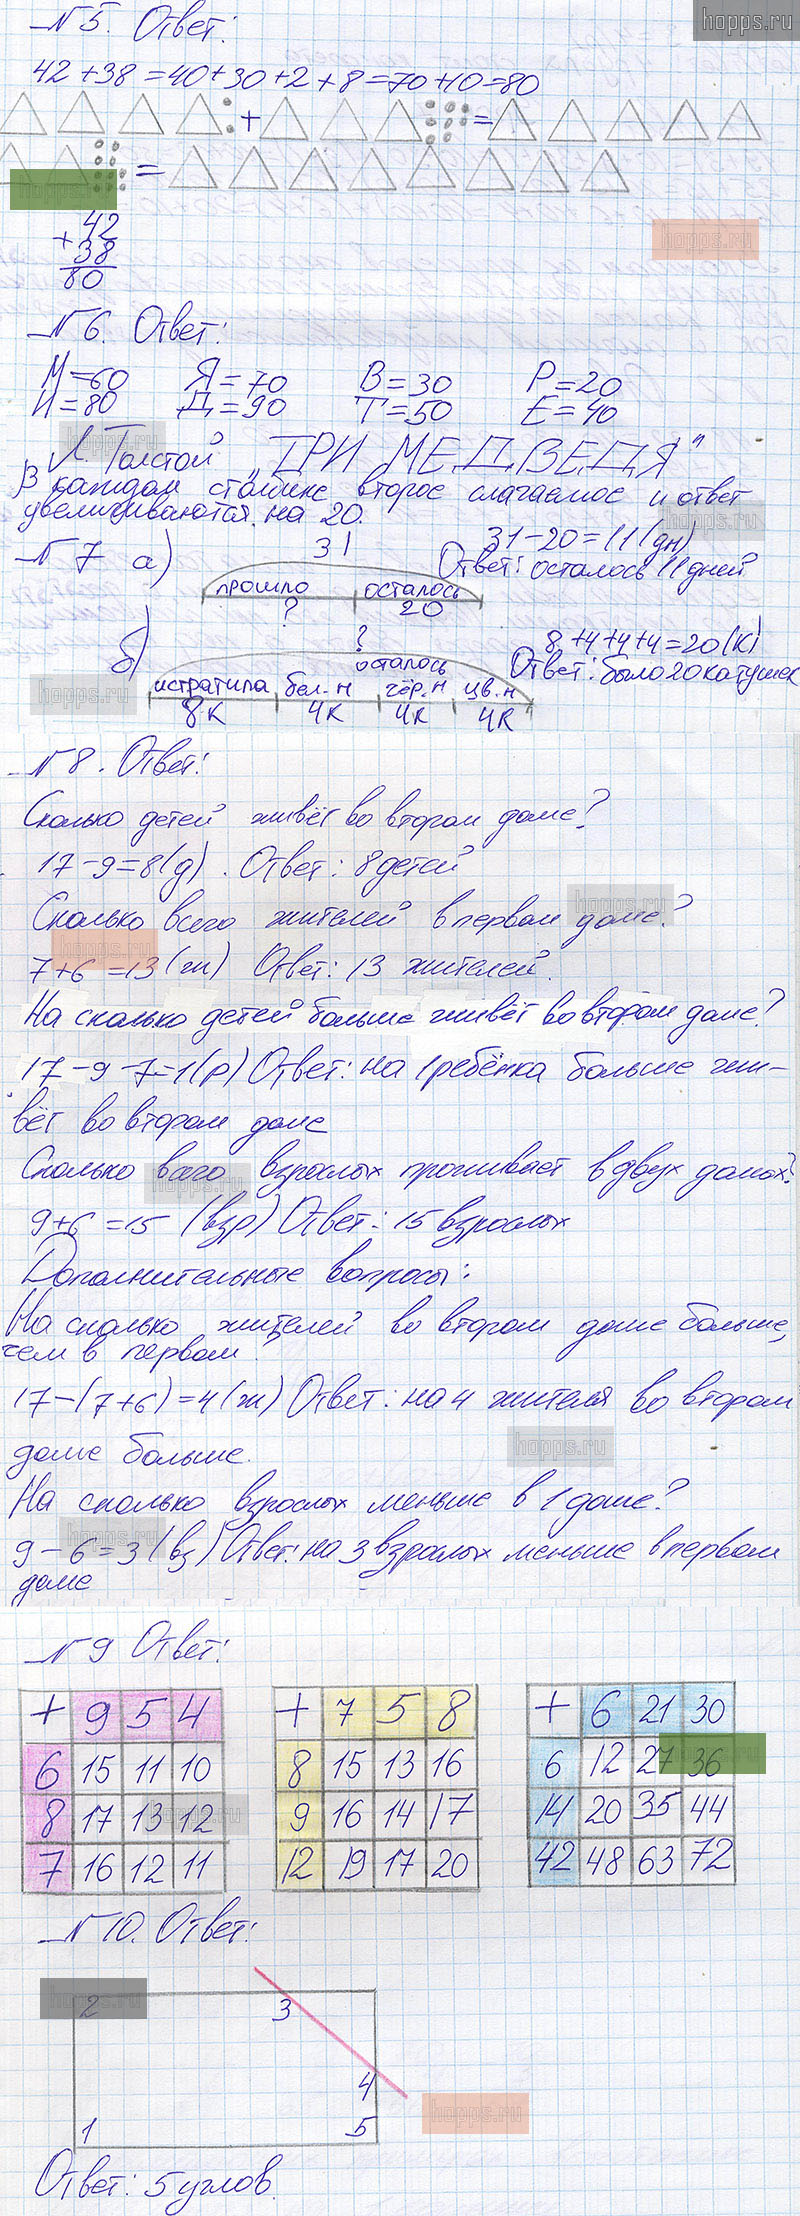 hopps.ru
№5. Ответ:
42+38=40+30+2+8=70+10=80
+ =
=
hopps.ru
hopps.ru
42
+
38
80
№6. Ответ:
М=60 Я=70 В=30 Р=20
И=80 Д=90 Т=50 Е=40
hopps.ru
Л. Толстой „ТРИ МЕДВЕДЯ"
В каждом столбике второе слагаемое и ответ
увеличиваются на 20.
hopps.ru
№7 а) 31 31-20=11(дн)
Ответ: осталось 11 дней
прошло осталось
? 20
б) ? 8+4+4+4=20(К)
осталось Ответ: было 20 катушек
истратила бел.н чёр.н цв.н
hopps.ru
8К 4К 4К 4К
№8. Ответ:
Сколько детей живёт во втором доме?
17-9=8(д). Ответ: 8 детей
hopps.ru
Сколько всего жителей в первом доме?
hopps.ru
7+6=13(ж) Ответ: 13 жителей.
На сколько детей больше живёт во втором доме?
17-9-7=1(р) Ответ: на 1 ребёнка больше жи-
вёт во втором доме
Сколько всего взрослых проживает в двух домах?
hopps.ru
9+6=15 (взр) Ответ: 15 взрослых
Дополнительные вопросы:
На сколько жителей во втором доме больше,
чем в первом?
17-(7+6)=4(ж) Ответ: на 4 жителя во втором
доме больше.
hopps.ru
На сколько взрослых меньше в 1 доме?
hopps.ru
9-6=3(вз) Ответ: на 3 взрослых меньше в первом
доме
№9 Ответ:
+ 9 5 4 + 7 5 8 + 6 21 30
6 15 11 10 8 15 13 16 6 12 27 36
hopps.ru
8 17 13 12 9 16 14 17 14 20 35 44
hopps.ru
7 16 12 11 12 19 17 20 42 48 63 72
№10. Ответ:
hopps.ru
2 3
4
1 5
hopps.ru
Ответ: 5 углов.